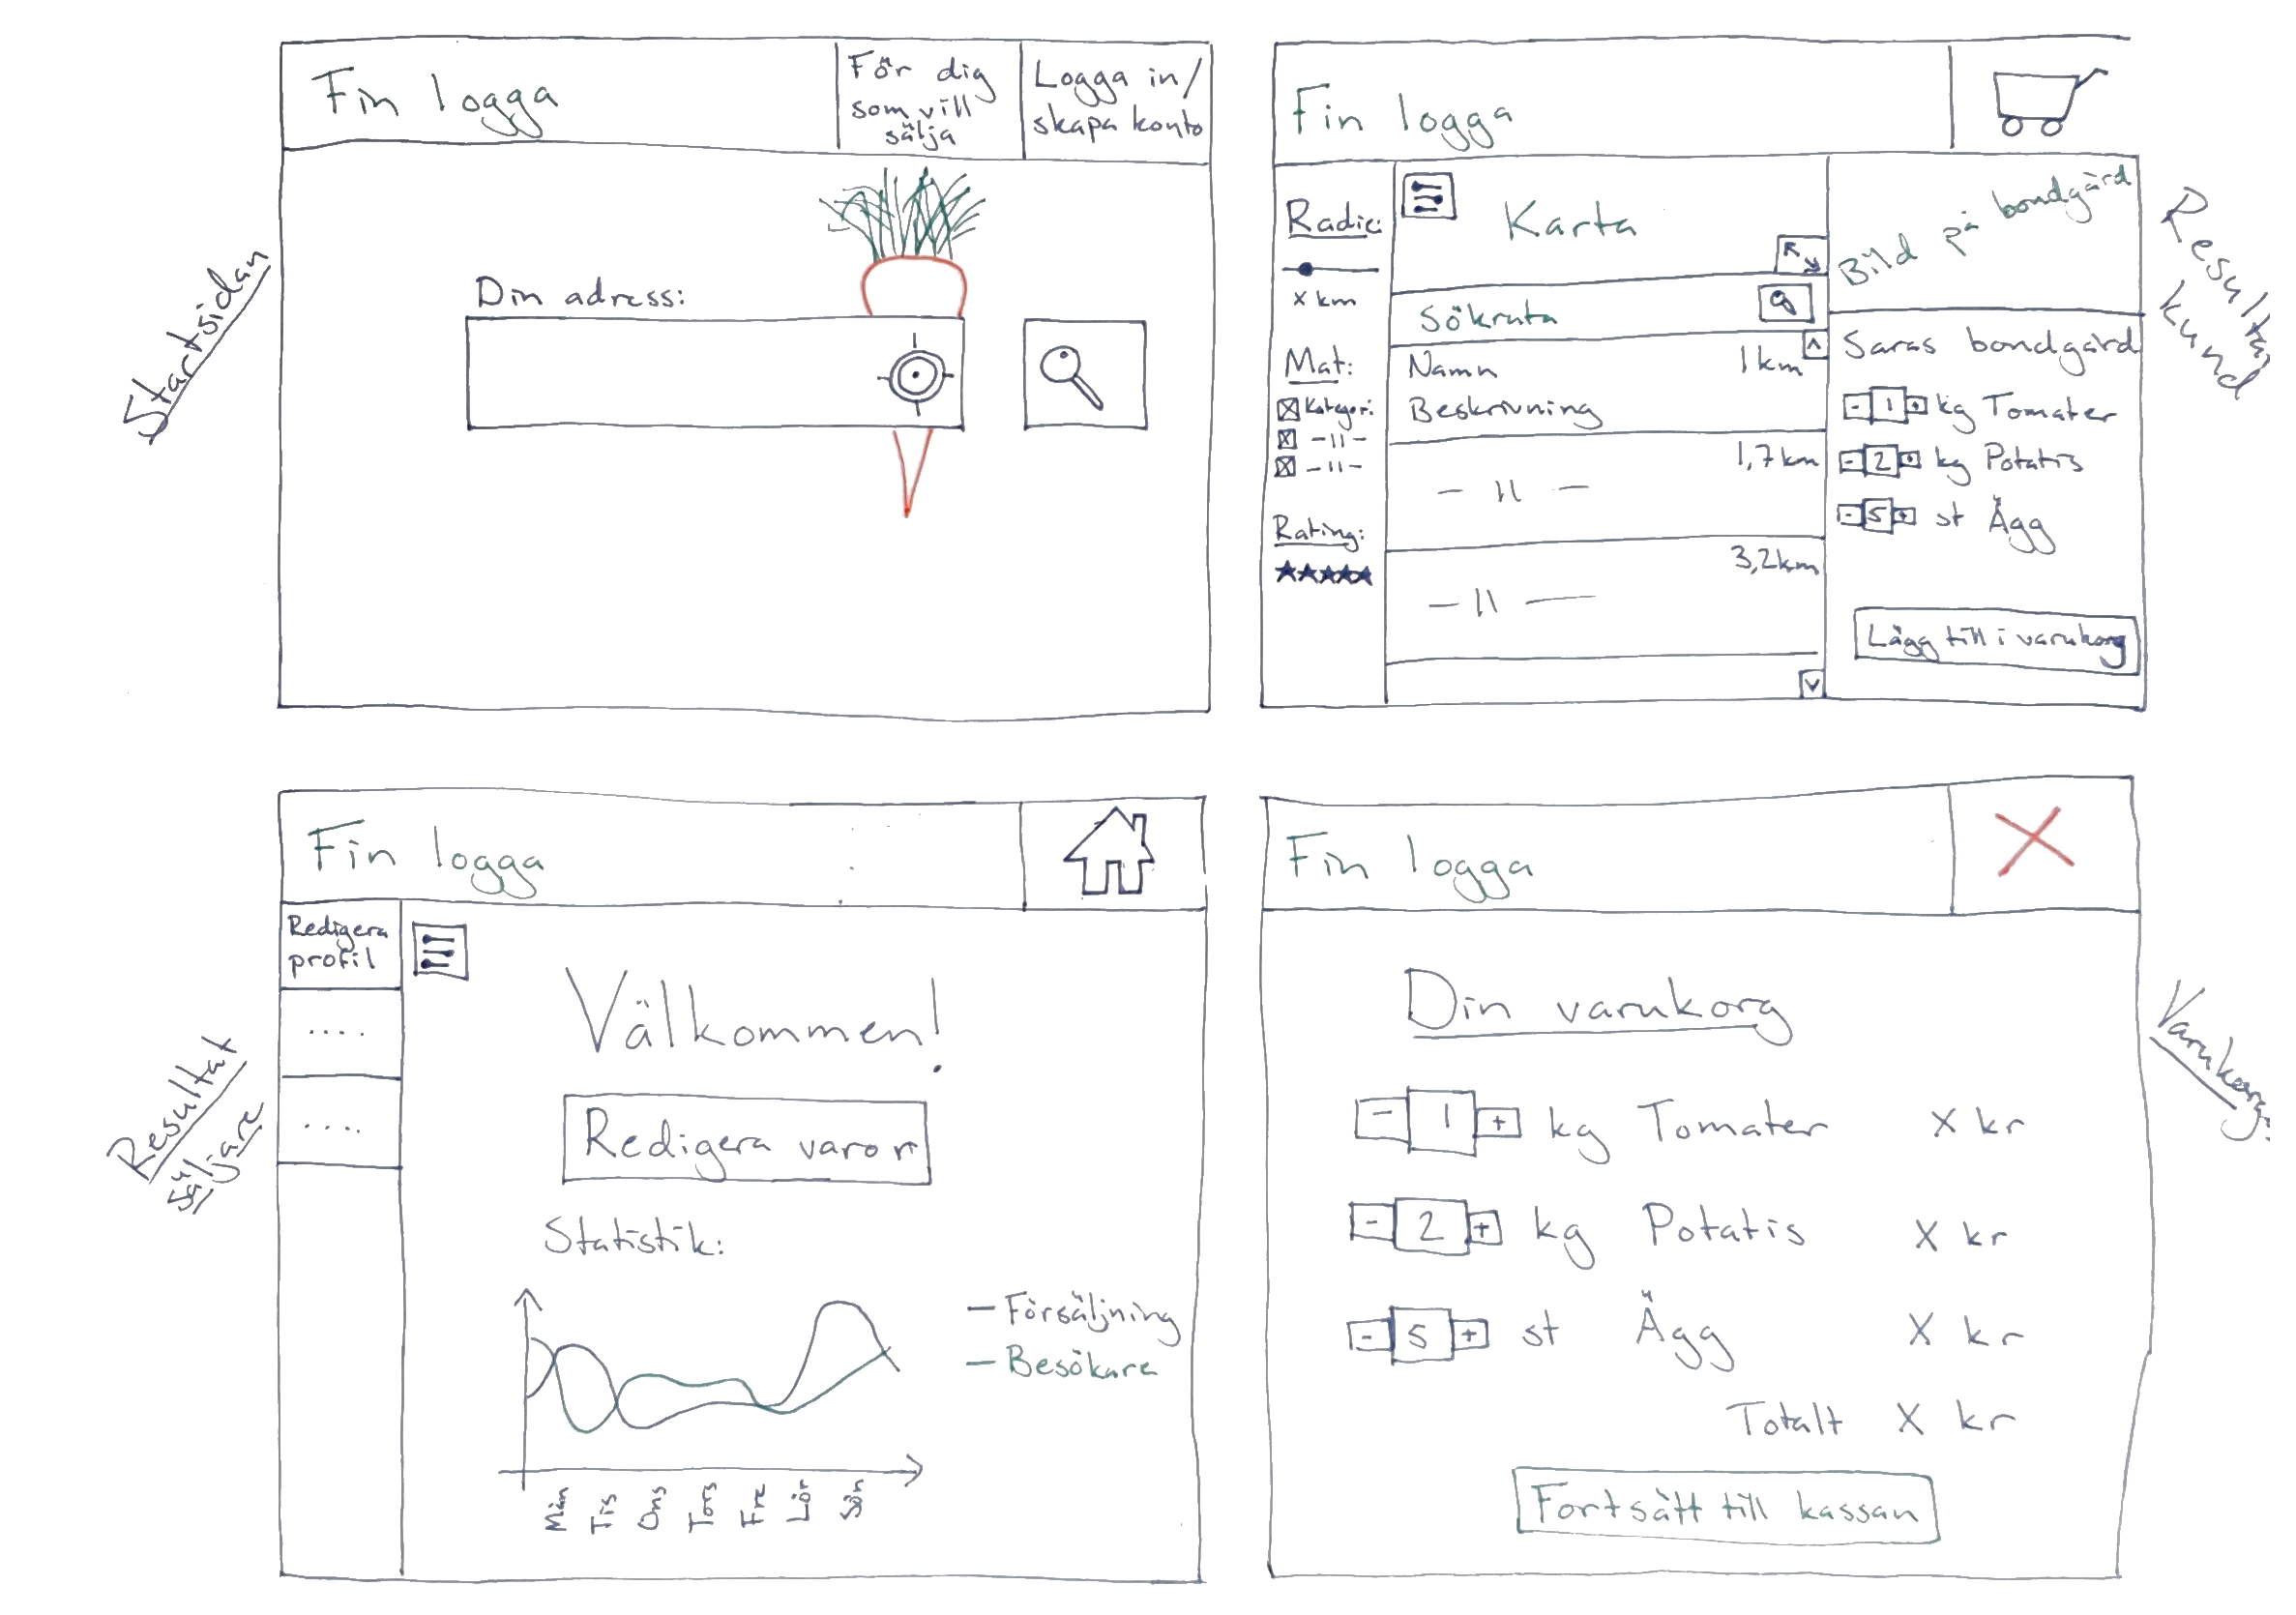 Startsidan
Fin logga
För dig
som vill
sälja
Logga in/
skapa konto
Din adress:
Resultat
kund
Fin logga
Radie:
x km
Mat:
Kategori
-11-
-11-
Rating:
Karta
Sökruta
Namn
1 km
Beskrivning
1,7 km
- 11 -
3,2 km
- 11 -
Bild på bondgård
Saras bondgård
- 1 + kg Tomater
- 2 + kg Potatis
- 5 + st Ägg
Lägg till i varukorg
Resultat
säljare
Fin logga
Redigera
profil
....
....
Välkommen!
Redigera varor
Statistik:
- Försäljning
- Besökare
Mån Tis Ons Tors Fre Lör Sön
Fin logga
Din varukorg
- 1 + kg Tomater X kr
- 2 + kg Potatis X kr
- 5 + st Ägg X kr
Totalt X kr
Fortsätt till kassan